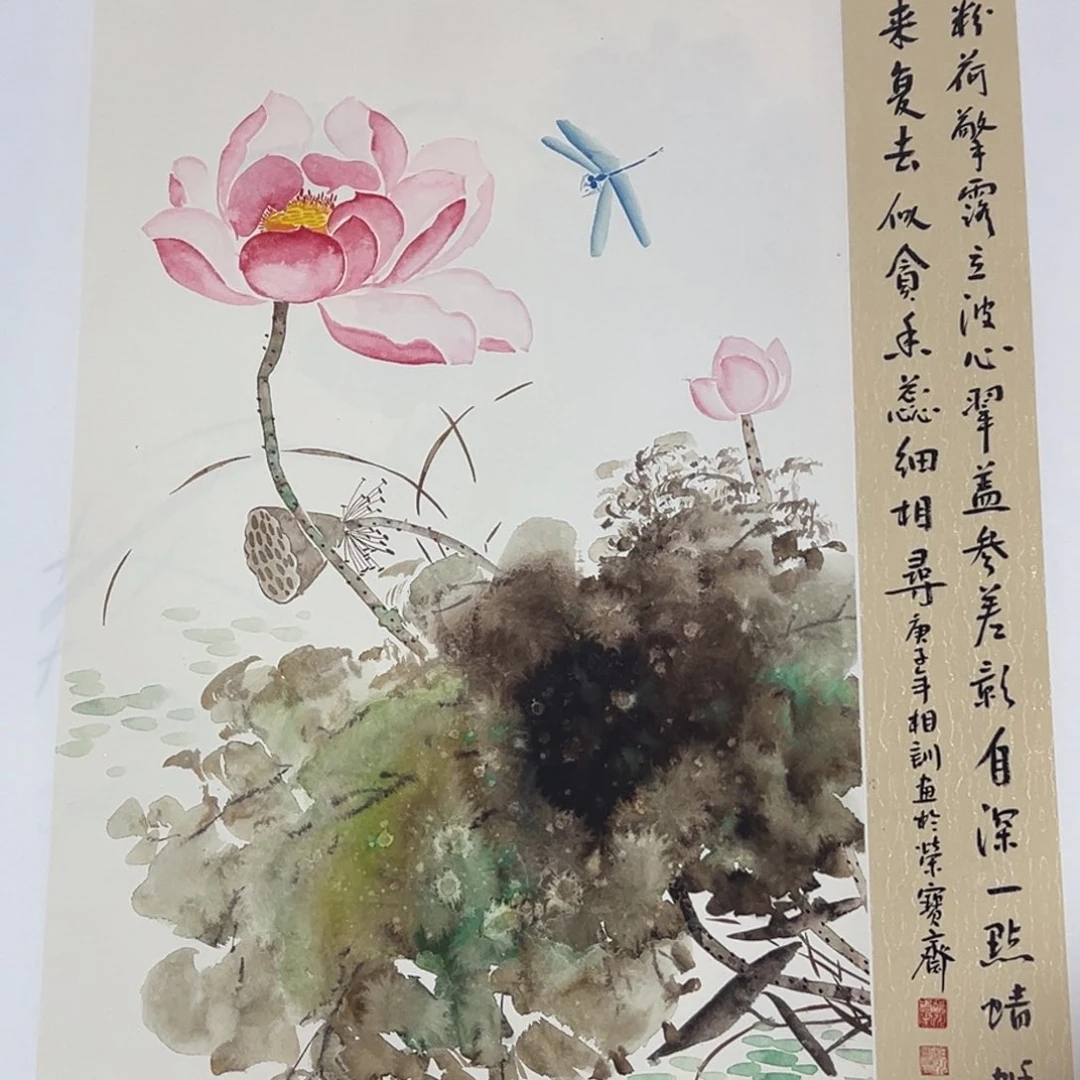 粉荷擎露立波心翠盖参差影自深一點蜻
来复去似貪香蕊细相尋庚子年相訓画於榮寶齋